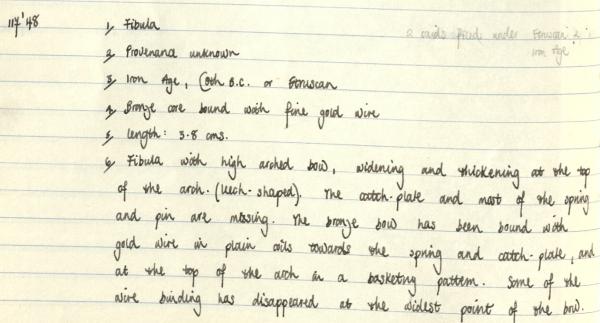 117'48
1, Fibula
2 cards filed under Etruscan &
Iron Age
2, Provenance unknown
3, Iron Age, 6th B.C. or Etruscan
4, Bronze core bound with fine gold wire
5, length: 3.8 cms.
6, Fibula with high arched bow, widening and thickening at the top
of the arch. (leech-shaped). The catch-plate and most of the spring
and pin are missing. The bronze bow has been bound with
gold wire in plain coils towards the spring and catch-plate, and
at the top of the arch in a basketry pattern. Some of the
wire binding has disappeared at the widest point of the bow.